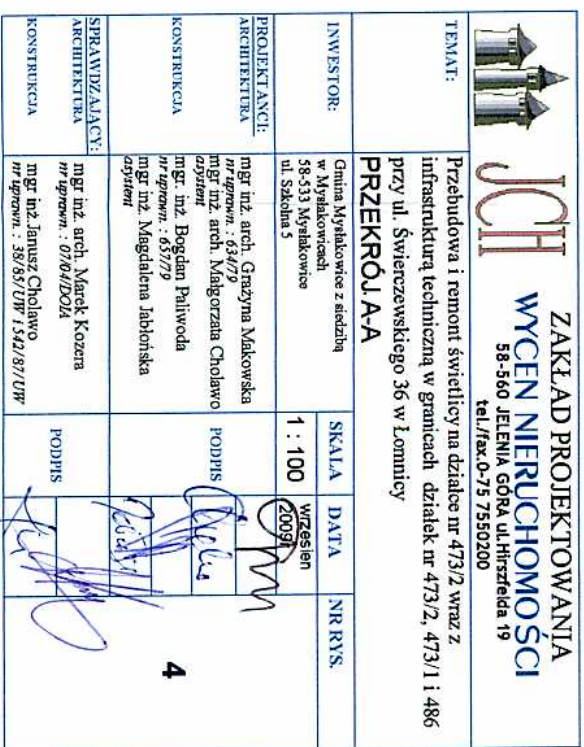 JCH
ZAKŁAD PROJEKTOWANIA
WYCEN NIERUCHOMOŚCI
58-560 JELENIA GÓRA ul.Hirszfelda 19
tel./fax.0-75 7550200
TEMAT:
Przebudowa i remont świetlicy na działce nr 473/2 wraz z
infrastrukturą techniczną w granicach działek nr 473/2, 473/1 i 486
przy ul. Świerczewskiego 36 w Łomnicy
PRZEKRÓJ A-A
INWESTOR:
Gmina Mysłakowice z siedzibą
w Mysłakowicach
58-533 Mysłakowice
ul. Szkolna 5
SKALA
1 : 100
DATA
wrzesien
2009r
NR RYS.
4
PROJEKTANCI:
ARCHITEKTURA
mgr inż. arch. Grażyna Makowska
nr uprawn. : 634/79
mgr inż. arch. Małgorzata Cholawo
asystent
KONSTRUKCJA
mgr. inż. Bogdan Paliwoda
nr uprawn. : 657/79
mgr inż. Magdalena Jabłońska
asystent
PODPIS
SPRAWDZAJĄCY:
ARCHITEKTURA
mgr inż. arch. Marek Kozera
nr uprawn. : 07/04/DOIA
KONSTRUKCJA
mgr inż.Janusz Cholawo
nr uprawn. : 38/85/UW i 542/87/UW
PODPIS